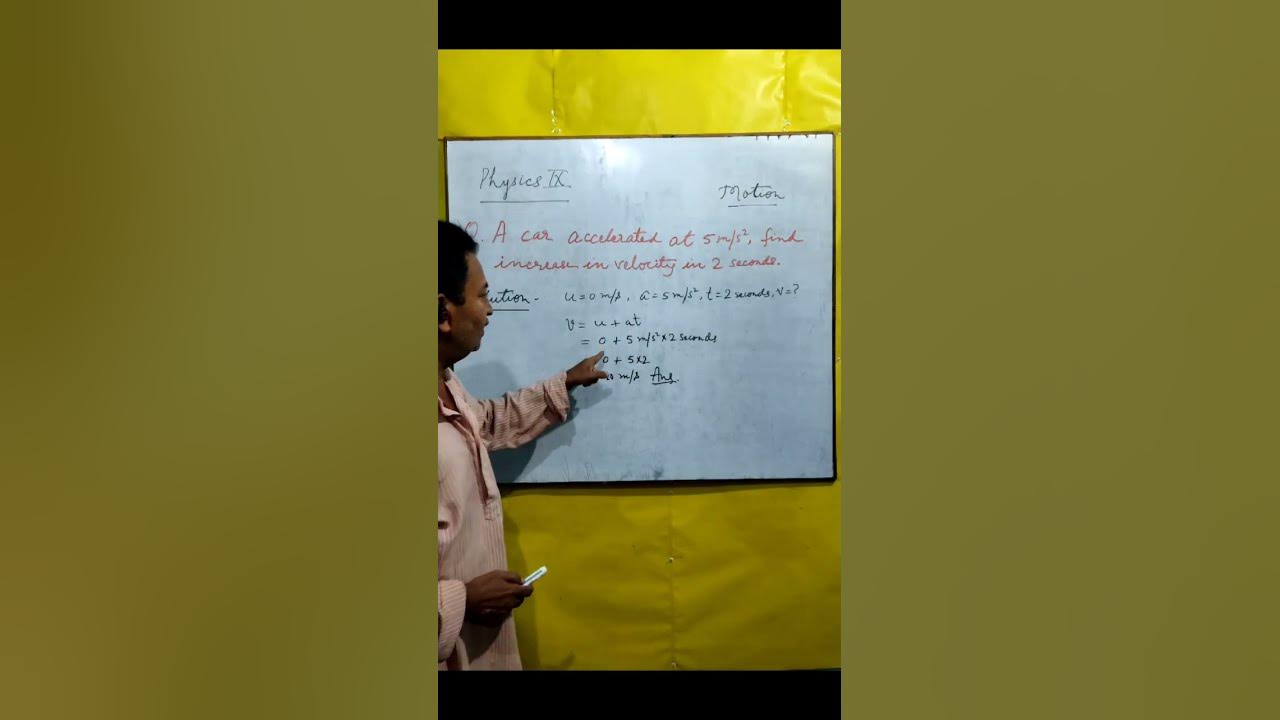 Physics IX
Motion
Q. A car accelerated at 5 m/s², find
increase in velocity in 2 seconds.
ution - u = 0 m/s, a = 5 m/s², t = 2 seconds, v = ?
v = u + at
= 0 + 5 m/s² × 2 seconds
0 + 5×2
10 m/s Ans.